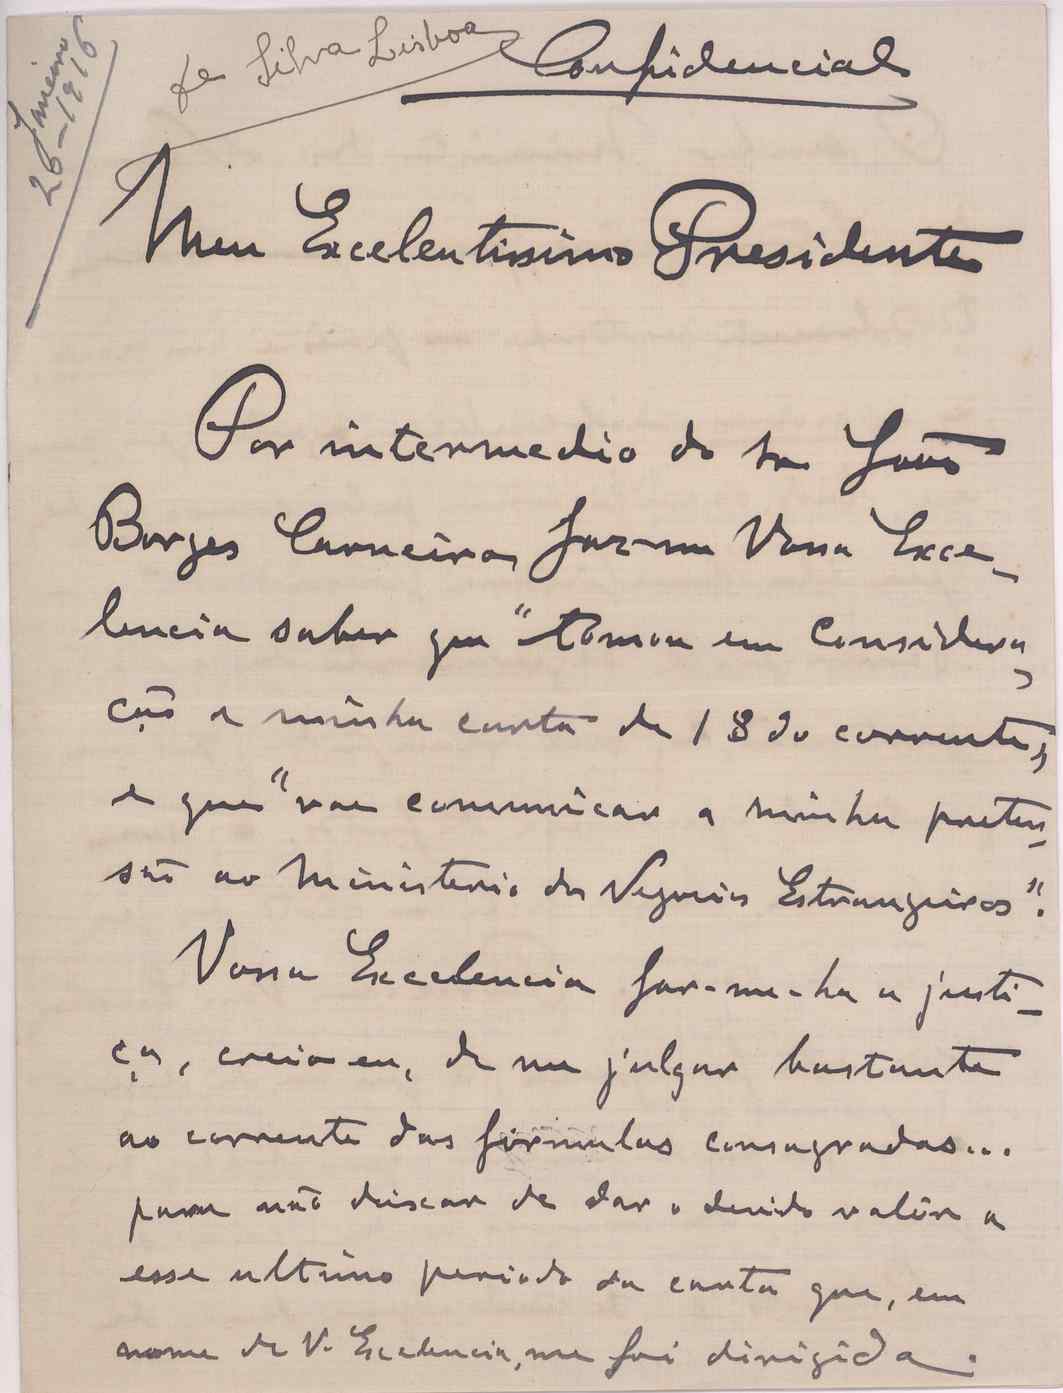 Janeiro
26-1916
de Silva Lisboa
Confidencial
Meu Excelentissimo Presidente
Por intermedio do sr. João
Borges Carneiro, faz-me Vossa Exce-
lencia saber que "tomou em considera-
ção a minha carta de 18 do corrente,
e que "vae comunicar a minha preten-
são ao Ministerio dos Negocios Estrangeiros".
Vossa Excelencia far-me-ha a justi-
ça, creio eu, de me julgar bastante
ao corrente das fórmulas consagradas...
para não deixar de dar o devido valôr a
esse ultimo periodo da carta que, em
nome de V. Excelencia, me foi dirigida.